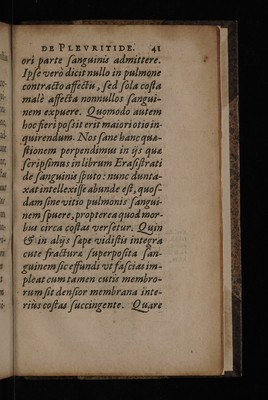 DE PLEVRITIDE. 41
ori parte sanguinis admittere.
Ipse verò dicit nullo in pulmone
contracto affectu, sed sola costa
malè affecta nonnullos sangui-
nem expuere. Quomodo autem
hoc fieri possit erit maiori otio in-
quirendum. Nos sane hanc quæ-
stionem perpendimus in ijs quæ
scripsimus in librum Erasistrati
de sanguinis sputo: nunc dunta-
xat intellexisse abunde est, quos-
dam sine vitio pulmonis sangui-
nem spuere, propterea quod mor-
bus circa costas versetur. Quin
& in alijs sæpe vidistis integra
cute fractura superposita san-
guinem sic effundi vt fascias im-
pleat cum tamen cutis membro-
rum sit densior membrana inte-
riùs costas succingente. Quare